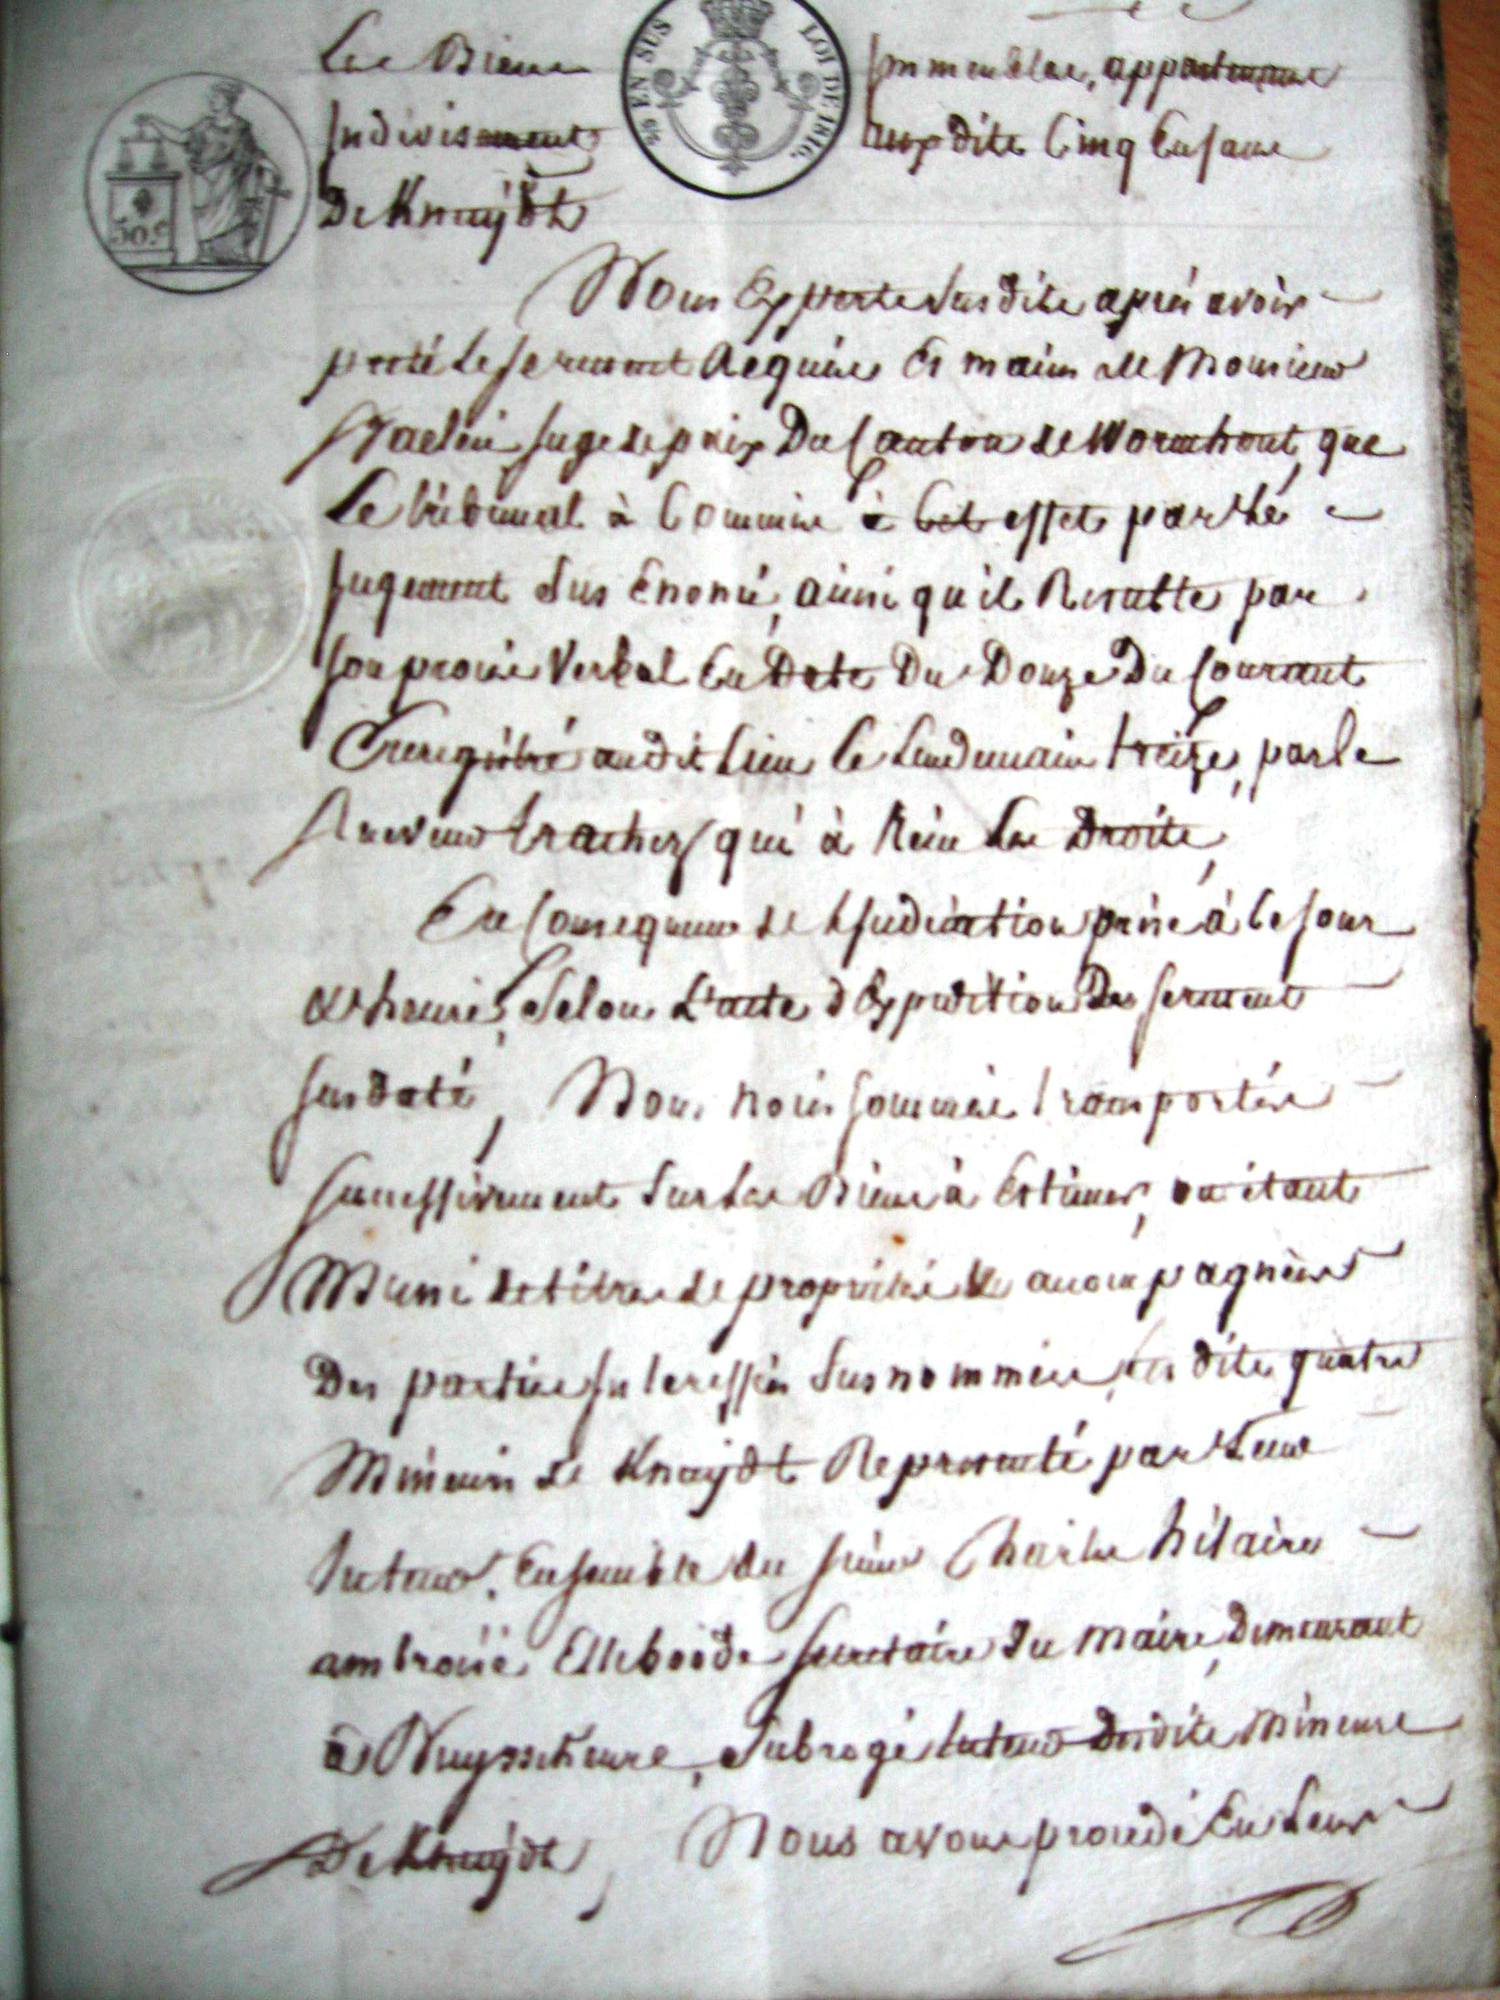 Les Biens Immeubles, appartenans
Indivisement auxdits Cinq Enfans
De Knuÿdt
50.c
¼ EN SUS LOI DE 1816.
Nous Experts Susdits après avoir
prété le serment Réquis Es mains de Monsieur
Staelen Juge de paix Du Canton de Wormhout, que
Le tribunal à Commis à Cet effet par le
Jugement Sus Enoncé, ainsi qu'il Resulte par
son procès Verbal En Date Du Douze Du Courant
Enregistré audit Lieu le Lendemain treize, par le
Receveur qui à Reçu les Droits,
En Consequence de l'Indication prise à Ce Jour
& heure, Selon L'acte d'Expedition Des Serment
susdaté, Nous nous sommes transportés
successivement Sur les Biens à Estimer, ou étant
Muni de titres de proprieté & accompagnés
Des parties Interessées Susnommées, les dits quatre
Mineurs de Knuÿdt Representé par Leur
tuteur, Ensemble du sieur Charles hilaire
ambroise Elleboode Secretaire du Maire, Demeurant
à Nuysscheure, Subrogé tuteur Desdits Mineurs
De Knuÿdt, Nous avons procedé En Leur